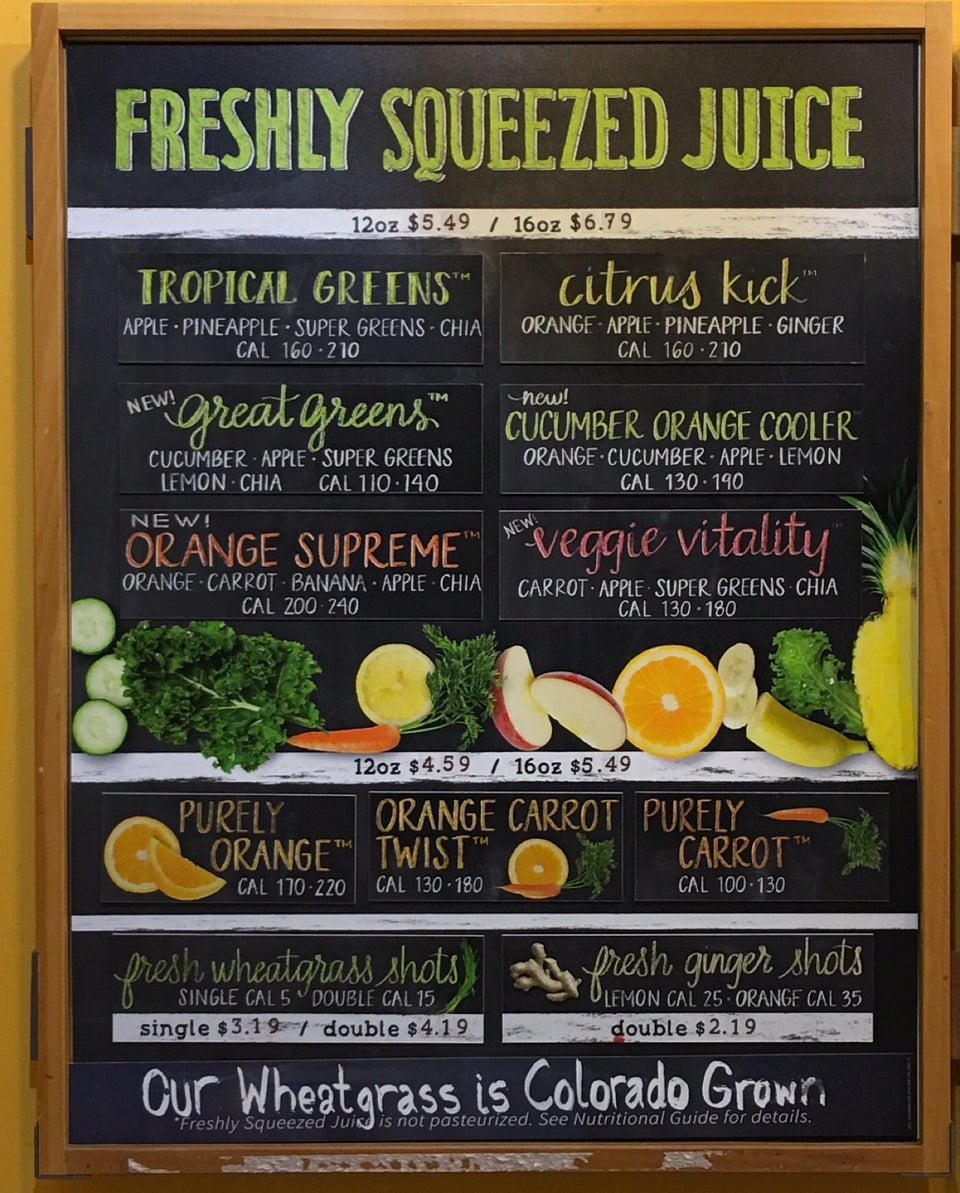 FRESHLY SQUEEZED JUICE
12oz $5.49 / 16oz $6.79
TROPICAL GREENS™
APPLE · PINEAPPLE · SUPER GREENS · CHIA
CAL 160 · 210
citrus kick™
ORANGE · APPLE · PINEAPPLE · GINGER
CAL 160 · 210
NEW! great greens™
CUCUMBER · APPLE · SUPER GREENS
LEMON · CHIA CAL 110 · 140
new!
CUCUMBER ORANGE COOLER
ORANGE · CUCUMBER · APPLE · LEMON
CAL 130 · 190
NEW!
ORANGE SUPREME™
ORANGE · CARROT · BANANA · APPLE · CHIA
CAL 200 · 240
NEW! veggie vitality™
CARROT · APPLE · SUPER GREENS · CHIA
CAL 130 · 180
12oz $4.59 / 16oz $5.49
PURELY
ORANGE™
CAL 170 · 220
ORANGE CARROT
TWIST™
CAL 130 · 180
PURELY
CARROT™
CAL 100 · 130
fresh wheatgrass shots
SINGLE CAL 5 DOUBLE CAL 15
single $3.19 / double $4.19
fresh ginger shots
LEMON CAL 25 · ORANGE CAL 35
double $2.19
Our Wheatgrass is Colorado Grown
*Freshly Squeezed Juice is not pasteurized. See Nutritional Guide for details.